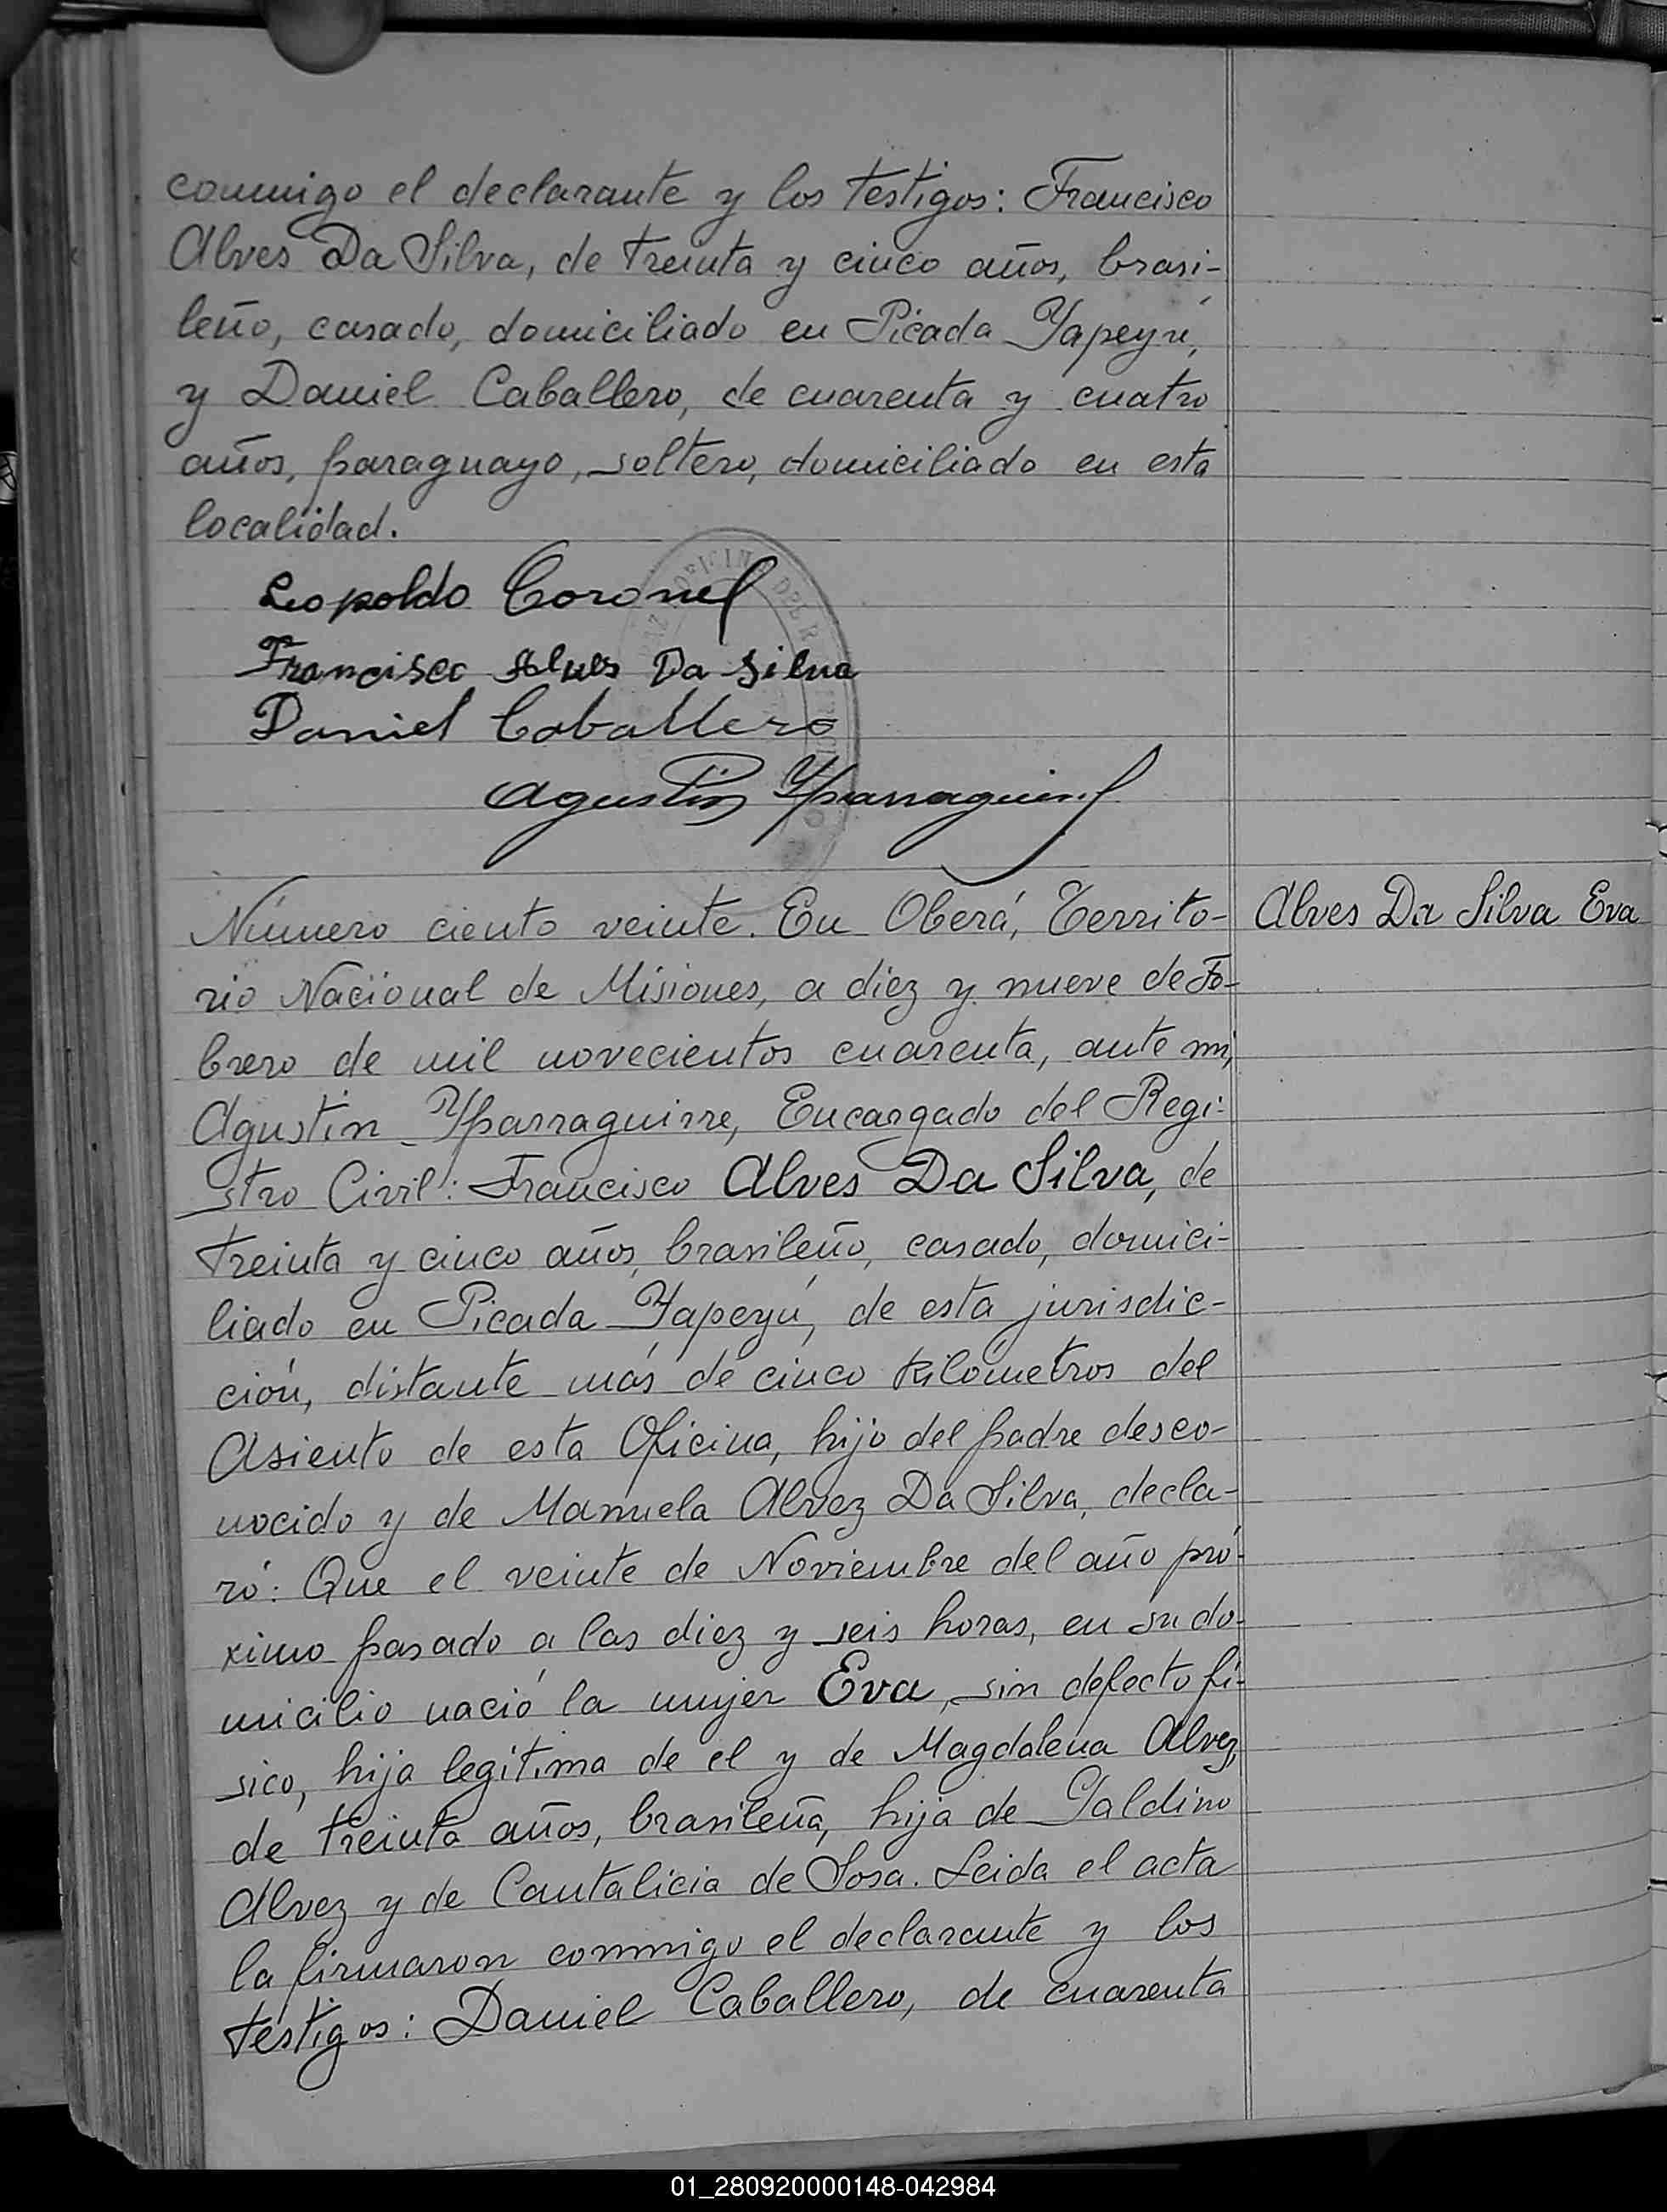 conmigo el declarante y los testigos: Francisco
Alves Da Silva, de treinta y cinco años, brasi-
leño, casado, domiciliado en Picada Yapeyú,
y Daniel Caballero, de cuarenta y cuatro
años, paraguayo, soltero, domiciliado en esta
localidad.
Leopoldo Coronel
Francisco Alves Da Silva
Daniel Caballero
Agustin Yparraguirre
Número ciento veinte. En Oberá, Territo-
Alves Da Silva Eva
rio Nacional de Misiones, a diez y nueve de Fe-
brero de mil novecientos cuarenta, ante mi,
Agustin Yparraguirre, Encargado del Regi-
stro Civil: Francisco Alves Da Silva, de
treinta y cinco años, brasileño, casado, domici-
liado en Picada Yapeyú, de esta jurisdic-
ción, distante más de cinco kilómetros del
Asiento de esta Oficina, hijo del padre desco-
nocido y de Manuela Alvez Da Silva, decla-
ró: Que el veinte de Noviembre del año pró-
ximo pasado a las diez y seis horas, en su do-
micilio nació la mujer Eva, sin defecto fí-
sico, hija legítima de el y de Magdalena Alvez,
de treinta años, brasileña, hija de Galdino
Alvez y de Cantalicia de Sosa. Leida el acta
la firmaron conmigo el declarante y los
testigos: Daniel Caballero, de cuarenta
01_280920000148-042984